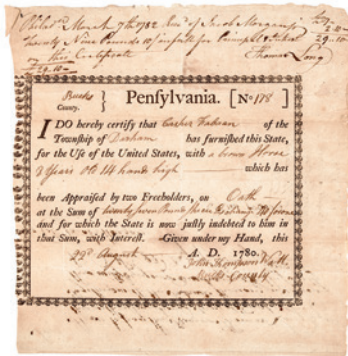 Philad.ᵃ March 7th 1782 Rec.d of Jacob Morgan Jr
Twenty Nine Pounds 10/ in full for Principal & Interest
on this Certificate
£29..10..
29..10
Thomas Long
Bucks County. } Penfylvania. [No 178]
I DO hereby certify that Casher Fabian of the
Township of Durham has furnifhed this State,
for the Ufe of the United States, with a brown Horse
8 Years Old 14 hands high which has
been Appraifed by two Freeholders, on Oath
at the Sum of twenty seven Pounds
and for which the State is now juftly indebted to him in
that Sum, with Intereft. Given under my Hand, this
29th Auguft A. D. 1780.
John Thompson
Bucks County